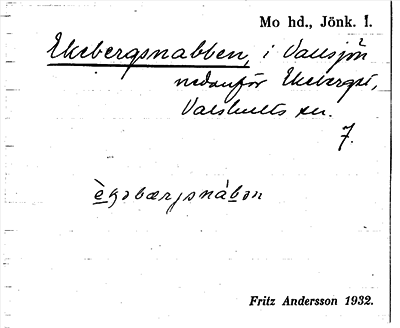 Mo hd., Jönk. l.
Ekebergsnabben, i Vallsjön
nedanför Ekeberget,
Valshults sn.
7.
èkəbærjsnábən
Fritz Andersson 1932.